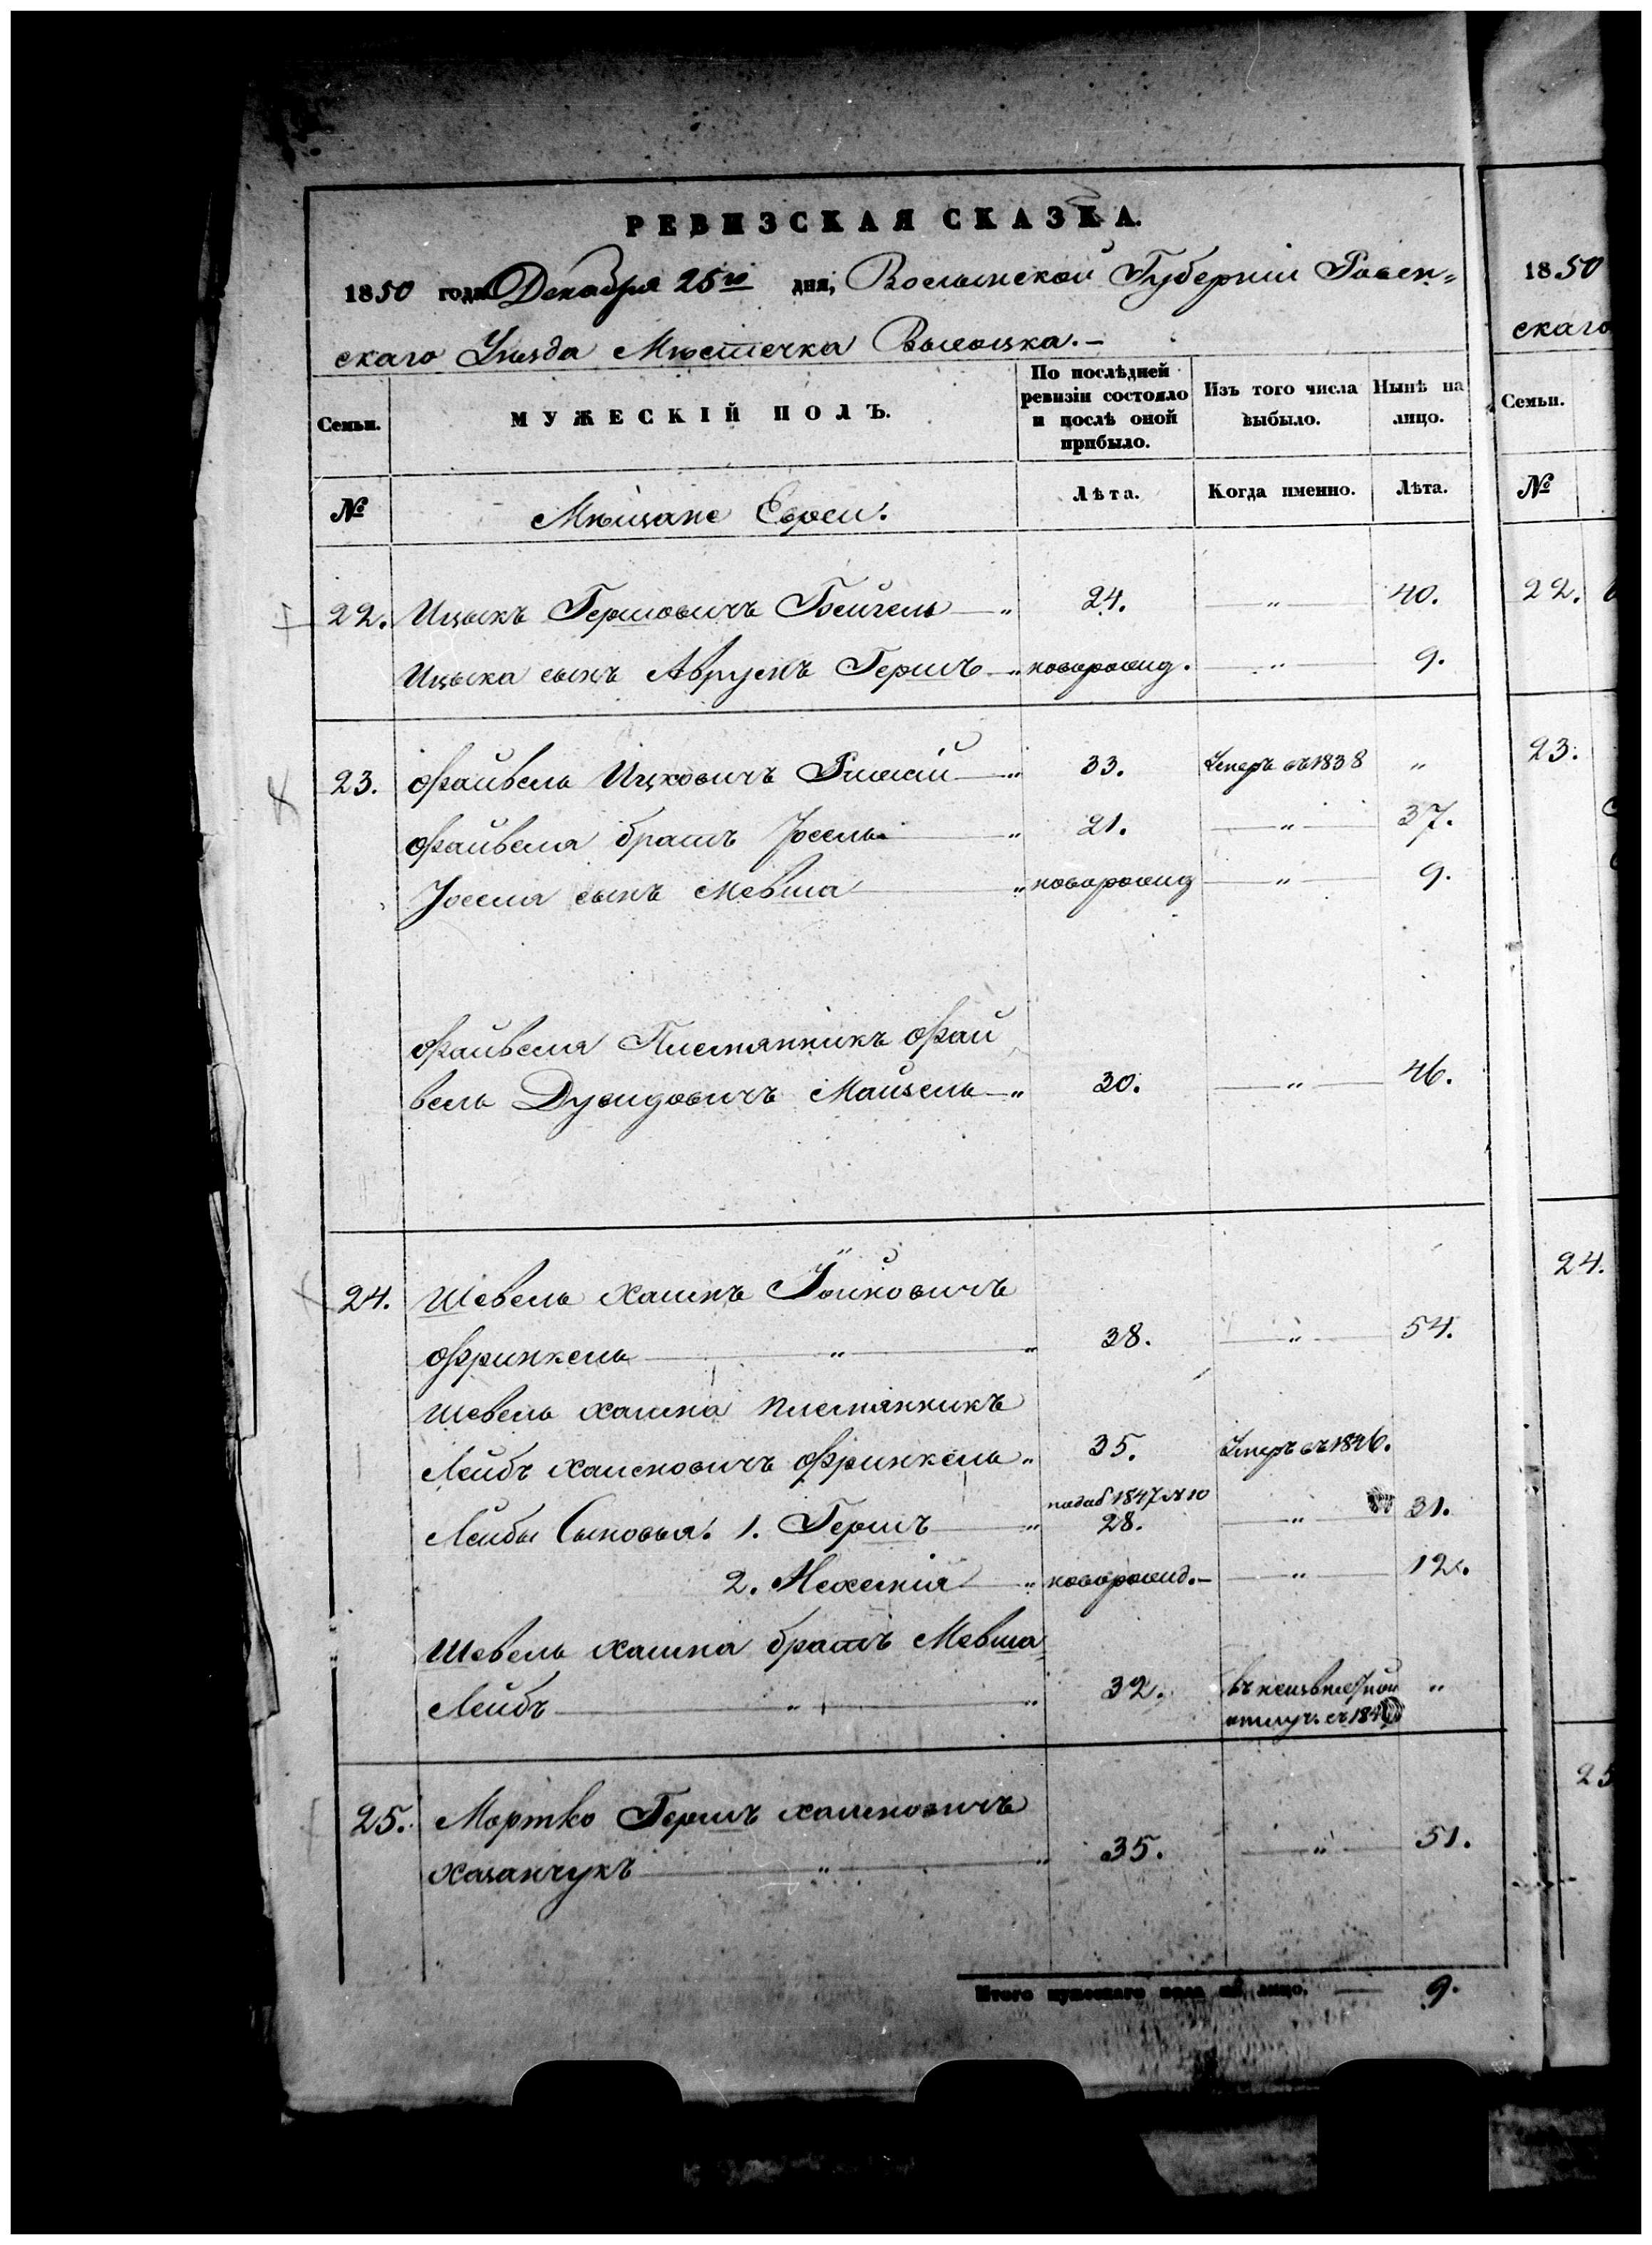 РЕВИЗСКАЯ СКАЗКА.
1850 года Декабря 25го дня, Волынской Губерніи Ровен=
скаго Уѣзда Мѣстечка Высоцка.-
Семьи.
МУЖЕСКІЙ ПОЛЪ.
По послѣдней ревизіи состояло и послѣ оной прибыло.
Изъ того числа выбыло.
Нынѣ на лицо.
№ Мѣщане Евреи. Лѣта. Когда именно. Лѣта.
22. Ицыкъ Гершовичъ Бейгель — " 24. — " — 40.
Ицыка сынъ Аврумъ Гершъ — " новорожд. — " — 9.
23. Файвель Ицковичъ " 33. Умеръ въ 1838 "
Файвеля братъ Іосель — " 21. — " — 37.
Іоселя сынъ Мевша — " новорожд — " — 9.
Файвеля Племянникъ Фай
вель Дувидовичъ Майзель — " 30. — " — 46.
24. Шевель Хаимъ Іойновичъ
Фринкель — " — " 38. — " — 54.
Шевель Хаима племянникъ
Лейбъ Хаимовичъ Фринкель " 35. Умеръ въ 1846.
Лейбы Сыновья: 1. Гершъ — " 1847 № 10 28. — " — 31.
2. Нехемія — " новорожд. — " — 12.
Шевель Хаима братъ Мевша
Лейбъ — " — " 32. въ неизвѣстной "
отлуч. съ
25. Мортко Гершъ Хаимовичъ
Хазанчукъ — " — " 35. — " — 51.
Итого мужескаго пола на лицо. — 9.
1850
скаго
Семьи.
№
22.
23.
24.
25